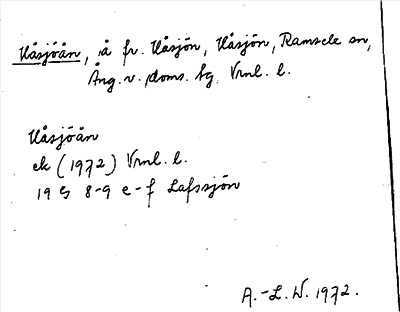 Håsjöån, å fr. Håsjön, Håsjön, Ramsele sn,
Ång. v. doms. tg. Vrnl. l.
Håsjöån
ek (1972) Vrnl. l.
19 G 8-9 e-f Lafssjön
A.-L.W. 1972.